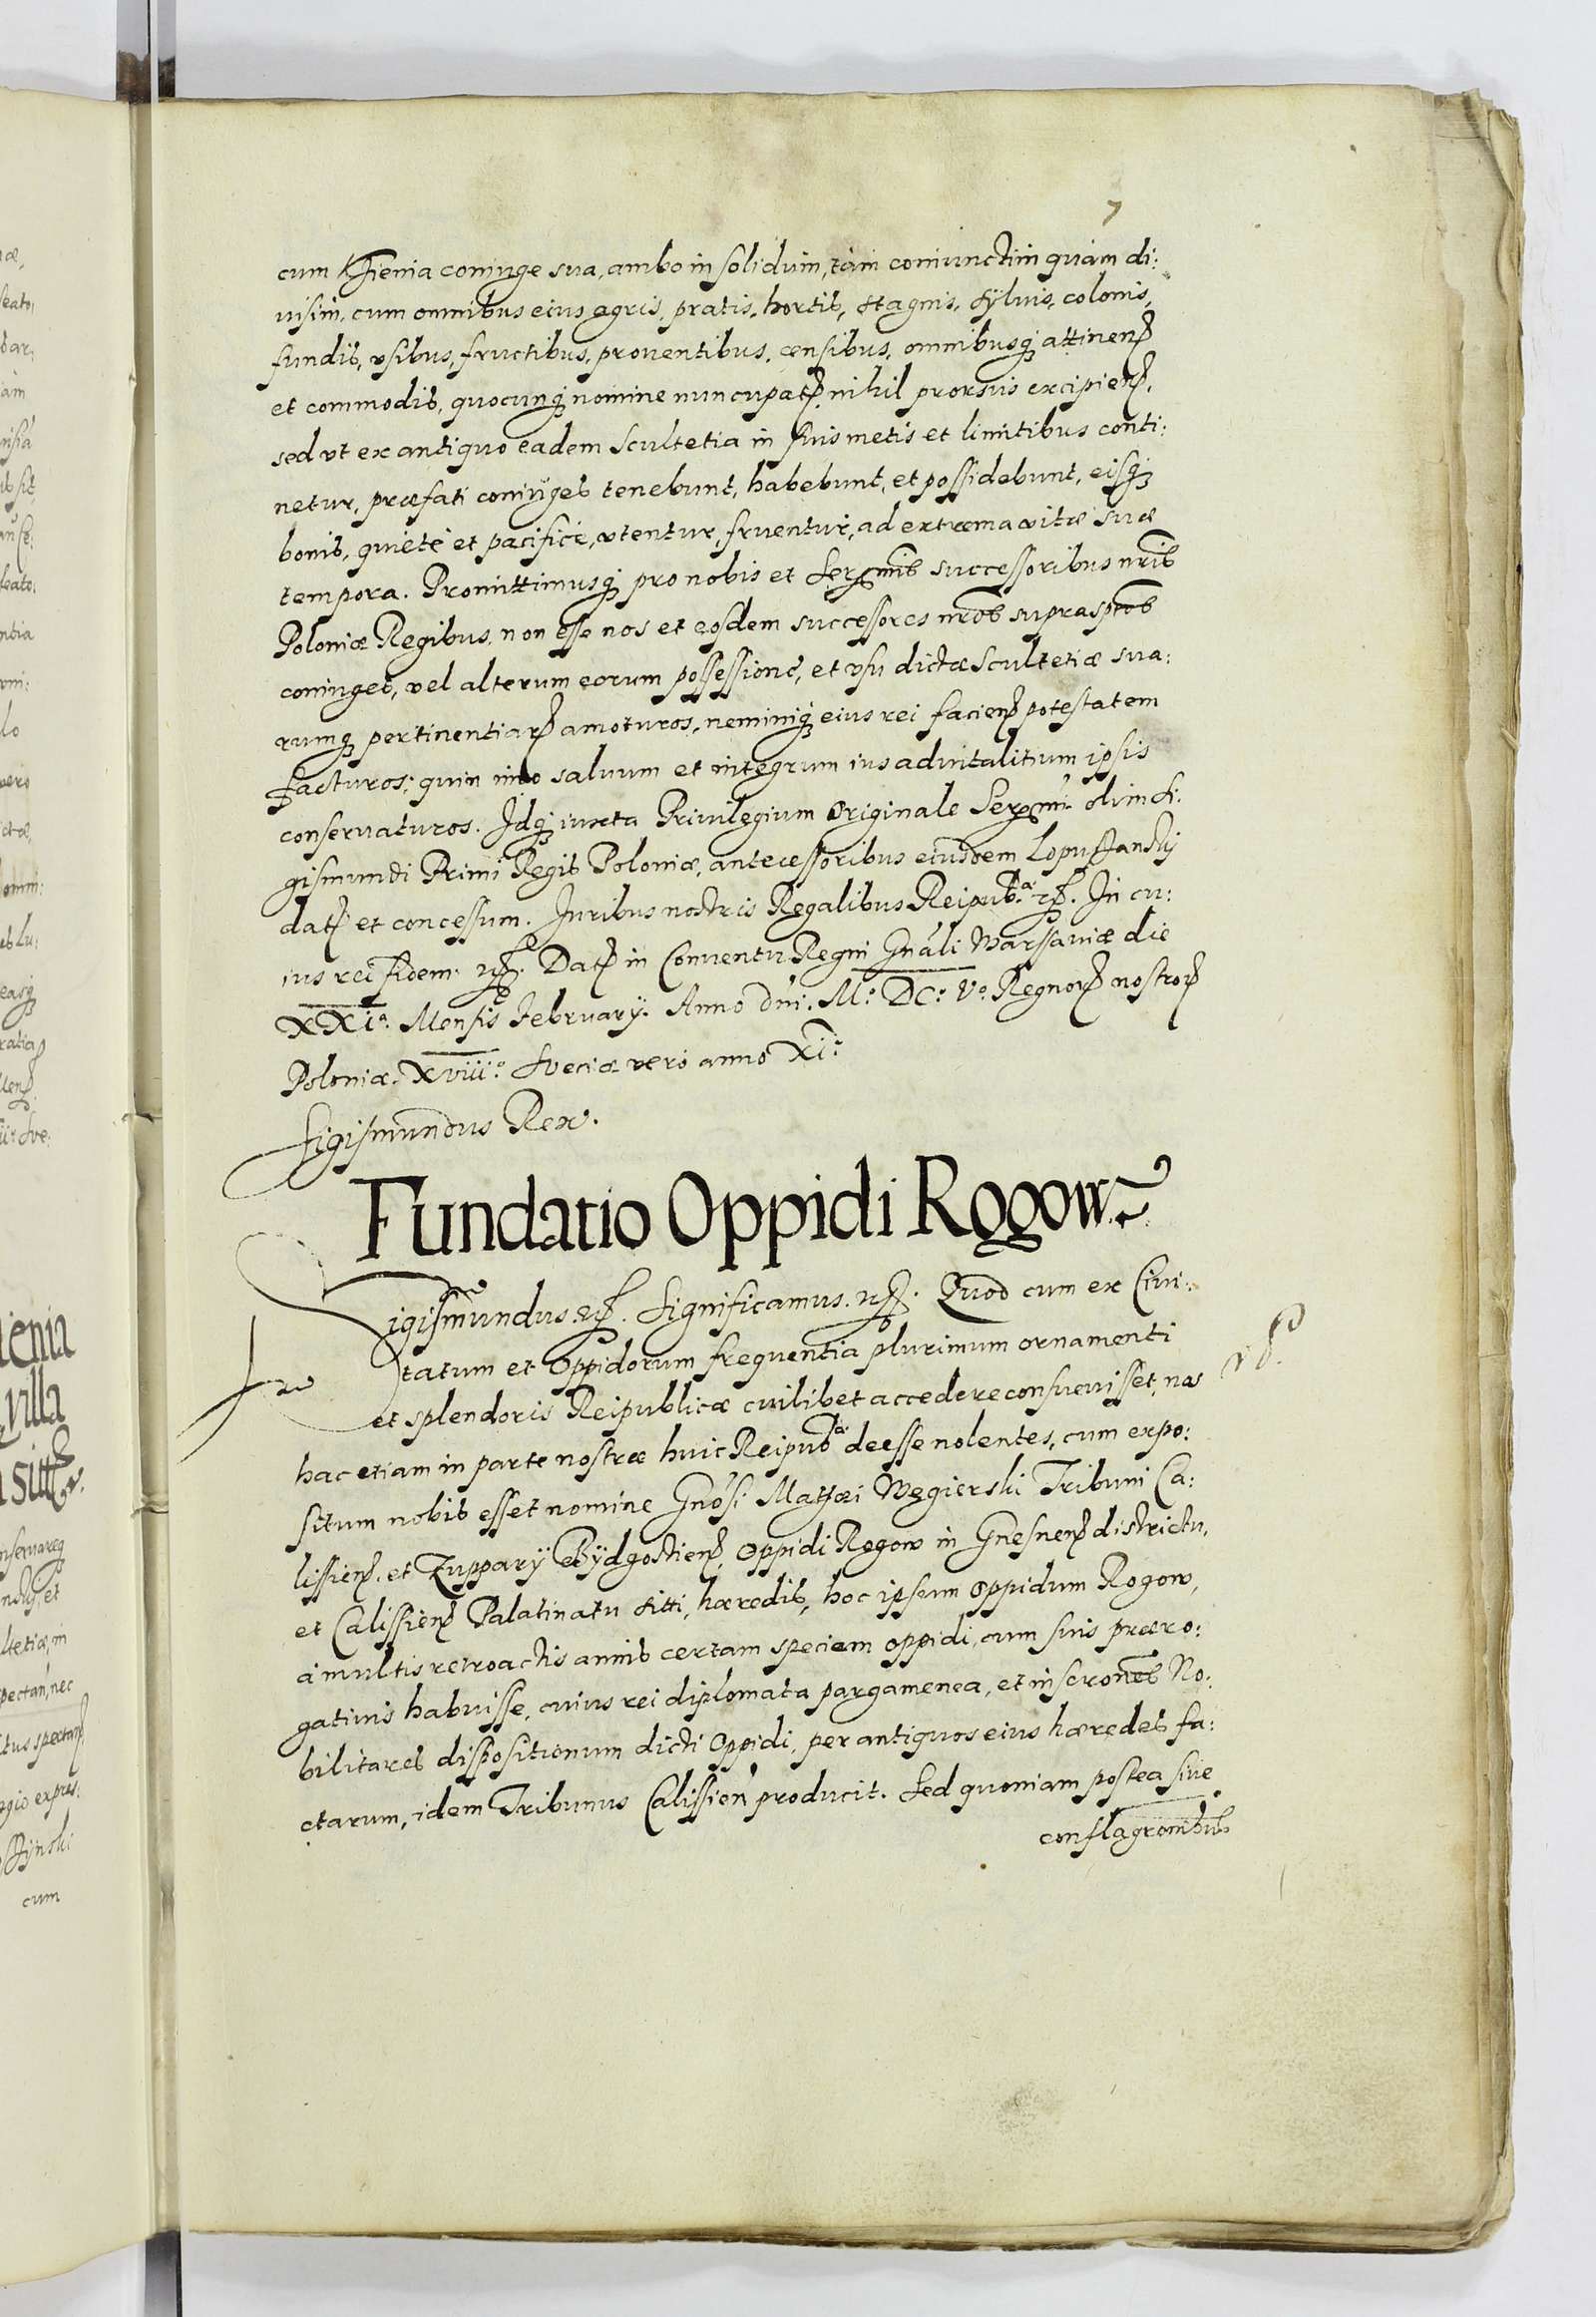 7
cum Xienia coniuge sua, ambo in solidum, tàm coniunctim quàm di:
uisim, cum omnibus eius agris, pratis, hortis, stagnis, sÿluis, colonis,
fundis, vsibus, fructibus, prouentibus, censibus, omnibusq3 attinen
et commodis, quocunq3 nomine nuncupat, nihil prorsus excipien,
sed vt ex antiquo eadem Scultetia in suis metis et limitibus conti:
netur, præfati coniuges tenebunt, habebunt, et possidebunt, eisq3
bonis, quietè et pacificè, vtentur, fruentur, ad extrema vitæ suæ
tempora. Promittimusq3 pro nobis et Sermis successoribus nris
Poloniæ Regibus, non esse nos et eosdem successores nros suprasptos
coniuges, vel alterum eorum possessione, et vsu dictæ Scultetiæ sua:
rumq3 pertinentiar amoturos, neminiq3 eius rei facien potestatem
facturos; quin imo saluum et integrum ius aduitalitium ipsis
conseruaturos. Idq3 iuxta Priuilegium Originale Sermi olim Si:
gismundi Primi Regis Poloniæ, antecessoribus eiusdem Lopuszanskj
dat et concessum. Iuribus nostris Regalibus Reipub.æ etc. In cu:
ius rei fidem. etc. Dat in Conuentu Regni Gnáli Warssauiæ die
XXIa. Mensis February. Anno dni. Mo. DCo. Vo. Regnor nostror
Poloniæ. XVIIIo. Sueciæ verò anno XIo.
Sigismundus Rex.
Fundatio Oppidi Rogow.
Sigismundus. etc. Significamus. etc. Quod cum ex Ciui:
tatum et Oppidorum frequentia plurimum ornamenti
et splendoris Reipublicæ cuilibet accedere consueuisset, nos
hac etiam in parte nostræ huic Reipub.æ deesse nolentes, cum expo:
situm nobis esset nomine Gnósi Matthæi Węgierski Tribuni Ca:
lissien. et Zupparÿ Bÿdgostien, Oppidi Rogow in Gnesnen districtu,
et Calissien Palatinatu siti, hæredis, hoc ipsum Oppidum Rogow,
à multis retroactis annis certam speciem oppidi, cum suis præro:
gatiuis habuisse, cuius rei diplomata pargamenea, et inscrones No:
bilitares dispositionum dicti Oppidi, per antiquos eius hæredes fa:
ctarum, idem Tribunus Calissien producit. Sed quoniam postea siue
conflagronibus